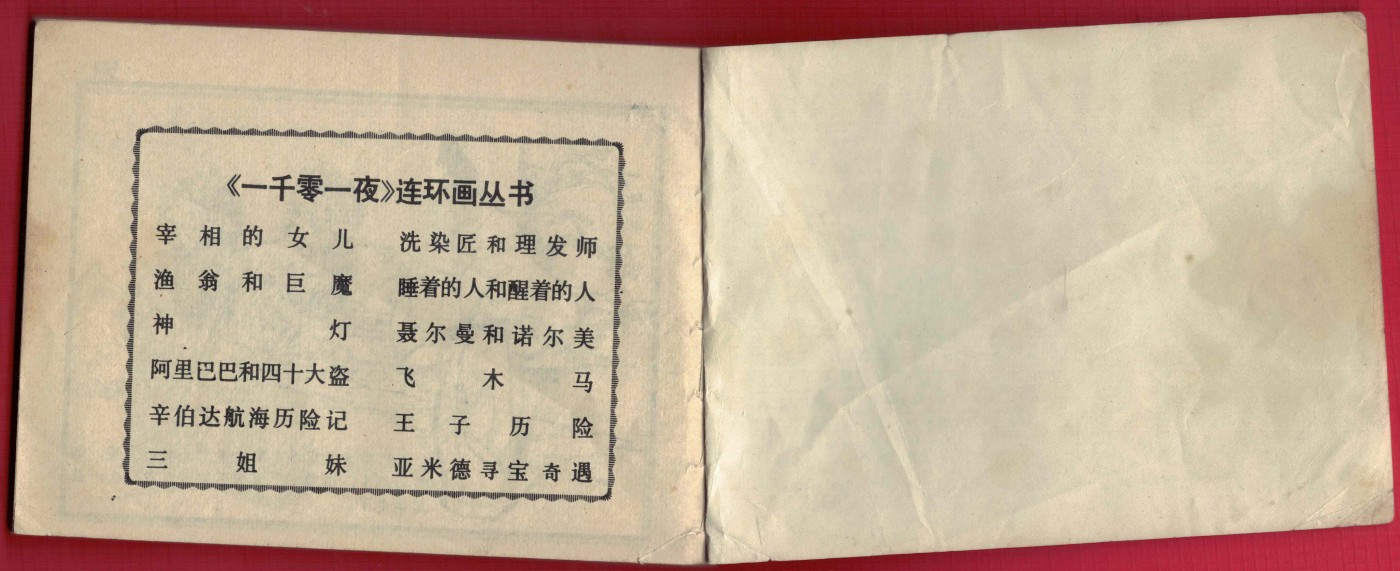 《一千零一夜》连环画丛书
宰相的女儿 洗染匠和理发师
渔翁和巨魔 睡着的人和醒着的人
神灯 聂尔曼和诺尔美
阿里巴巴和四十大盗 飞木马
辛伯达航海历险记 王子历险
三姐妹 亚米德寻宝奇遇